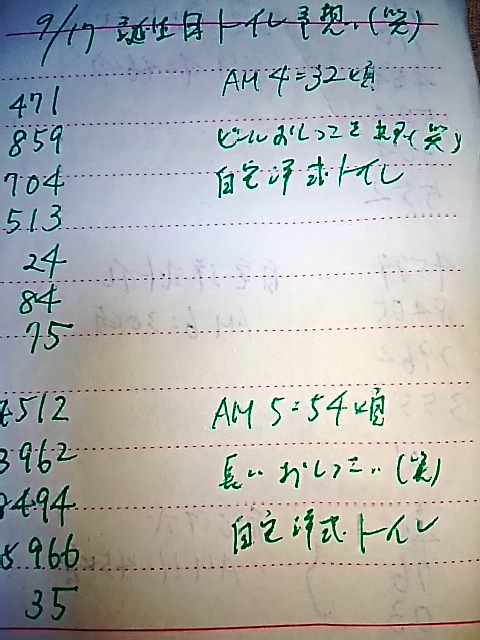 9/17 誕生日トイレ予想。(笑)
AM 4:32頃
471
859
ビールおしっこを (笑)
704
自宅洋式トイレ
513
24
84
75
512
AM 5:54頃
3962
長いおしっこ。(笑)
8494
自宅洋式トイレ
966
35